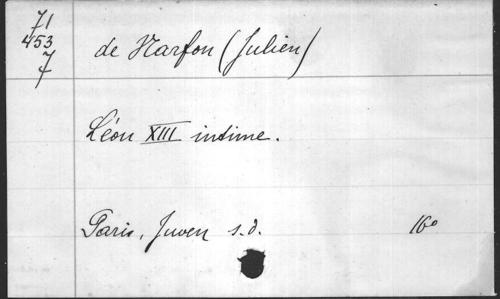 71
453
7
de Narfon (Julien)
Léon XIII intime.
Paris, Juven s.d. 16º